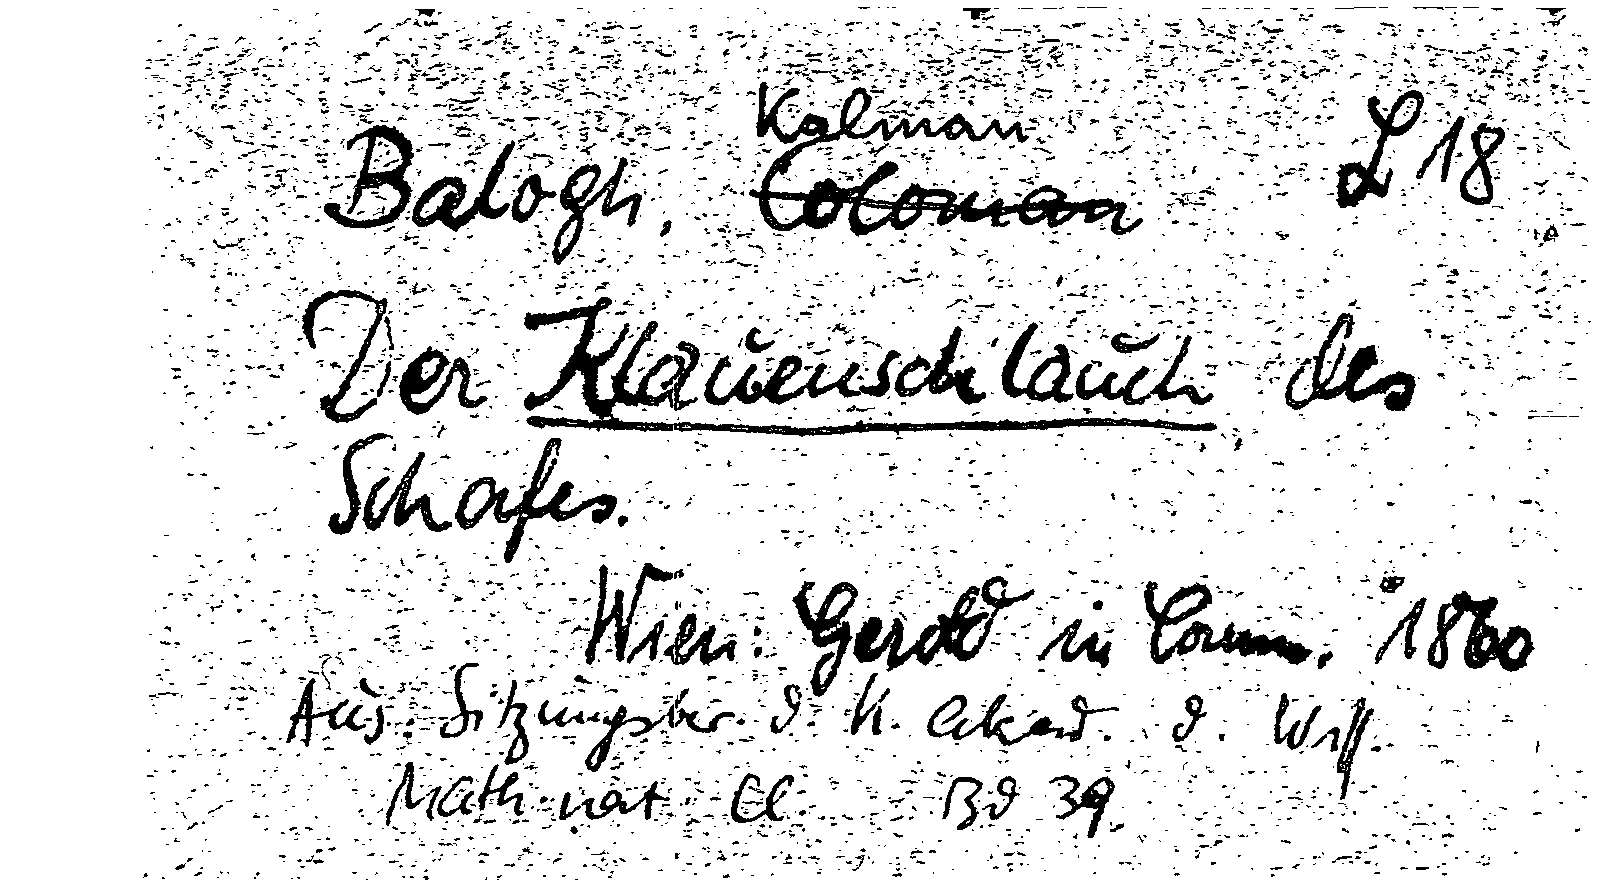 Kalman
Balogh, Coloman L 18
Der Klauenschlauch des
Schafes.
Wien: Gerold in Comm. 1860
Aus: Sitzungsber. d. K. Akad. d. Wiss.
Math. nat Cl. Bd 39.